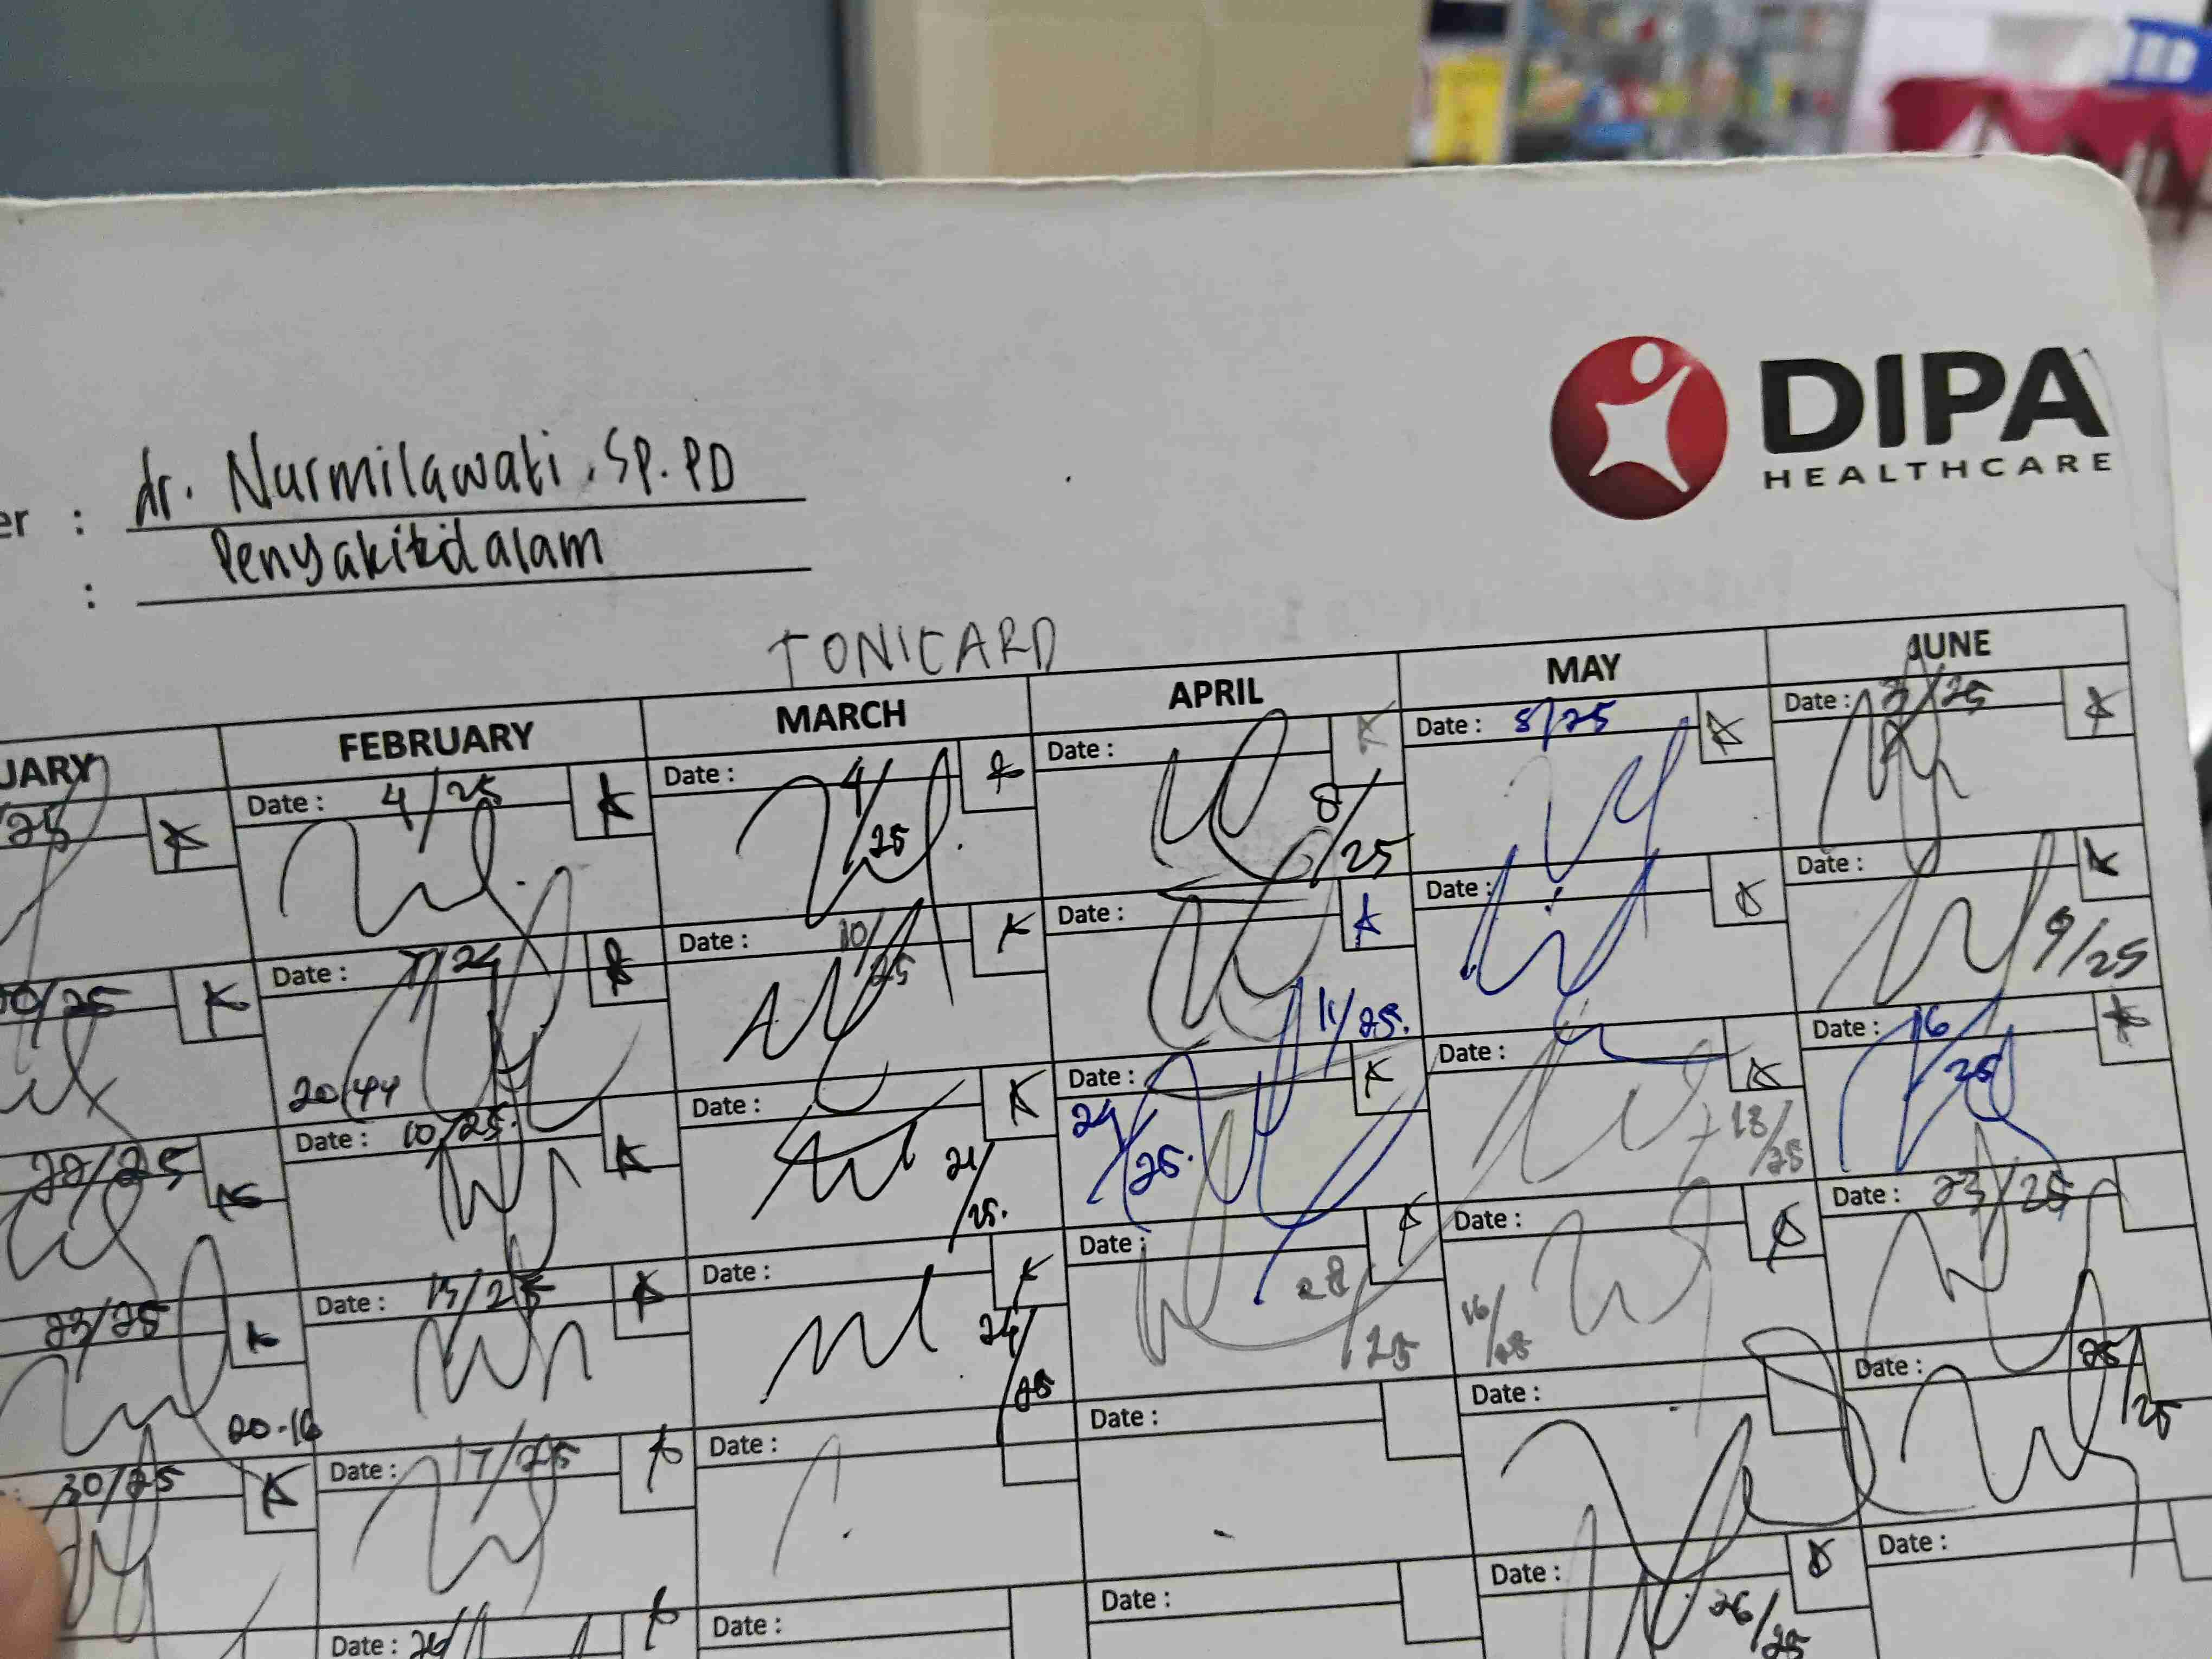 DIPA
HEALTHCARE
er : dr. Nurmilawati. SP.PD
: Penyakitdalam
TONICARD
UARY FEBRUARY MARCH APRIL MAY JUNE
/25 Date : 4/25 Date : 4/25 Date : 8/25 Date : 8/25 Date : 3/25
/25 Date : Date : 10/25 Date : 11/25. Date : Date : 9/25
20/25 Date : 10/25. Date : 21/25. Date : 24/25. Date : Date : 16/25
23/25 Date : Date : 24/25 Date : 28/25 Date : 16/25 Date : 23/25
30/25 Date : 17/25 Date : Date : Date : Date :
Date : Date : Date : Date : 26/25 Date :